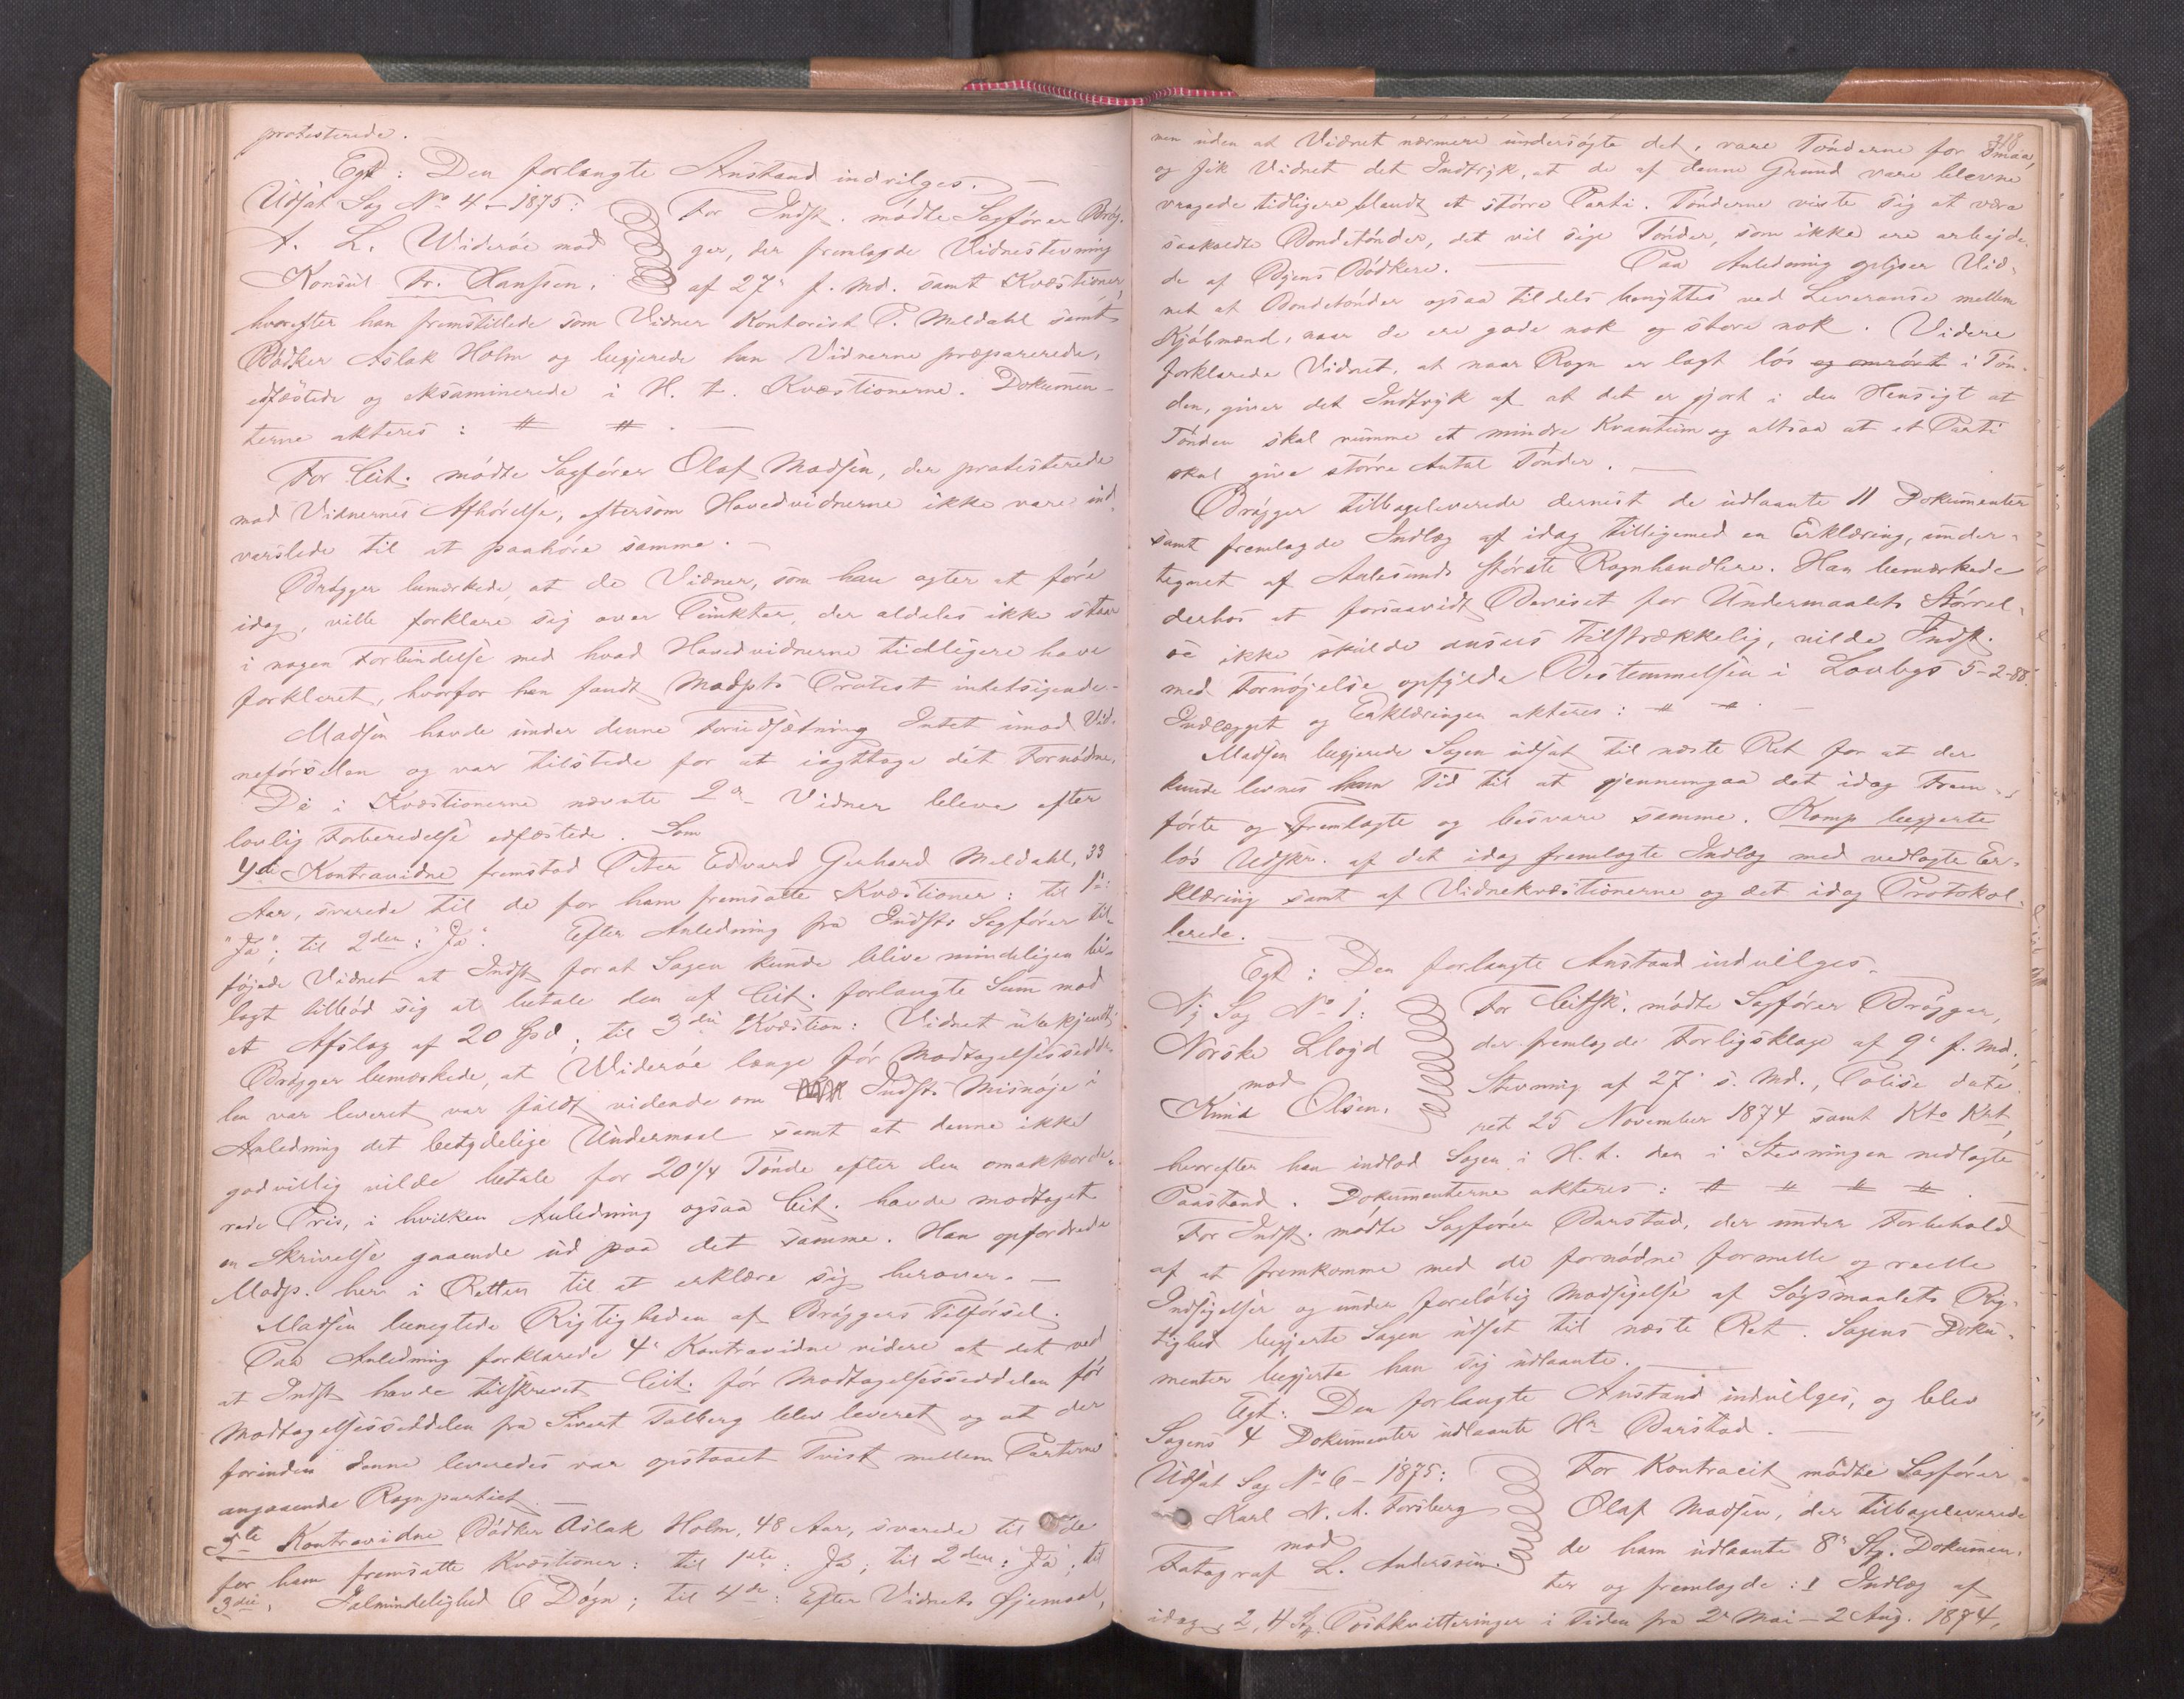 protesterede. —
Egt: Den forlangte Anstand indvilges. —
Udsat Sag No 4 – 1875:
A. L. Widerøe mod
Konsul Fr. Hanssen.
For Indst. mødte Sagfører Brøg-
ger, der fremlagde Vidnestevning
af 27' f. Md. samt Kvæstioner,
hvorefter han fremstillede som Vidner Kontorist P. Meldahl samt
Bødker Aslak Holm og begjerede han Vidnerne præparerede,
edfæstede og eksaminerede i H. t. Kvæstionerne. Dokumen-
terne akteres: # # . —
For Cit. mødte Sagfører Olaf Madsen, der protesterede
mod Vidnernes Afhørelse, eftersom Hovedvidnerne ikke vare ind-
varslede til at paahøre samme. —
Brøgger bemærkede, at de Vidner, som han agter at føre
idag, ville forklare sig over Punkter, der aldeles ikke staar
i nogen Forbindelse med hvad Hovedvidnerne tidligere have
forklaret, hvorfor han fandt Modpts Protest intetsigende. –
Madsen havde under denne Forudsætning Intet imod Vid-
neførselen og var tilstede for at iagttage det Fornødne.
De i Kvæstionerne nævnte 2 Vidner bleve efter
lovlig Forberedelse edfæstede. Som
4de Kontravidne fremstod Peter Edvard Gerhard Meldahl, 33
Aar, svarede til de for ham fremsatte Kvæstioner: til 1ste:
"Ja"; til 2den: "Ja". Efter Anledning fra Indsts Sagfører til-
føjede Vidnet at Indst forat Sagen kunde blive mindeligen bi-
lagt tilbød sig at betale den af Cit. forlangte Sum mod
et Afslag af 20 Spd; til 3die Kvæstion: Vidnet ubekjendt.
Brøgger bemærkede, at Widerøe længe før Modtagelsessedde-
len var leveret var fuldt vidende om Indsts Misnøje i
Anledning det betydelige Undermaal samt at denne ikke
godvillig vilde betale for 20 1/4 Tønde efter den omakkorde-
rede Pris, i hvilken Anledning ogsaa Cit. havde modtaget
en Skrivelse gaaende ud paa det samme. Han opfordrede
Modp. her i Retten til at erklære sig herover. —
Madsen benegtede Rigtigheden af Brøggers Tilførsel.
Paa Anledning forklarede 4' Kontravidne videre at det ved
at Indst havde tilskrevet Cit. før Modtagelsesseddelen før
Modtagelsesseddelen fra Sivert Talberg blev leveret og at der
forinden denne leveredes var opstaaet Tvist mellem Parterne
angaaende Rognpartiet. —
5te Kontravidne Bødker Aslak Holm, 48 Aar, svarede til de
for ham fremsatte Kvæstioner: til 1ste: Ja; til 2den: Ja; til
3die: Ialmindelighed 6 Døgn; til 4de: Efter Vidnets Øjemaal,
318
men uden at Vidnet nærmere undersøgte det, vare Tønderne for smaa,
og fik Vidnet det Indtryk, at de af denne Grund vare blevne
vragede tidligere blandt et større Parti. Tønderne viste sig at være
saakaldte Bondetønder, det vil sige Tønder, som ikke ere arbejde-
de af Byens Bødkere. — Paa Anledning oplyser Vid-
net at Bondetønder ogsaa tildels benyttes ved Leveranse mellem
Kjøbmænd, naar de ere gode nok og store nok. Videre
forklarede Vidnet, at naar Rogn er lagt løs og omrørt i Tøn-
den, giver det Indtryk af at det er gjort i den Hensigt at
Tønden skal rumme et mindre Kvantum og altsaa at et Parti
skal give større Antal Tønder. —
Brøgger tilbageleverede dernæst de udlaante 11 Dokumenter
samt fremlagde Indlæg af idag tilligemed en Erklæring, under-
tegnet af Aalesunds største Rognhandlere. Han bemærkede
derhos at forsaavidt Beviset for Undermaalets Størrel-
se ikke skulde ansees tilstrækkelig, vilde Indst.
med Fornøjelse opfylde Bestemmelsen i Lovbogs 5-2-88.
Indlægget og Erklæringen akteres: # # . —
Madsen begjerede Sagen udsat til næste Ret for at der
kunde levnes ham Tid til at gjennemgaa det idag Frem-
førte og Fremlagte og besvare samme. Komp begjerte
løs Udskr. af det idag fremlagte Indlæg med vedlagte Er-
klæring samt af Vidnekvæstionerne og det idag Protokol-
lerede. —
Egt: Den forlangte Anstand indvilges. —
Nj Sag No 1:
Norske Lloyd
mod
Knud Olsen.
For Citsk. mødte Sagfører Brøgger,
der fremlagde Forligsklage af 9' f. Md.,
Stevning af 27' s. Md., Polise date-
ret 25 November 1874 samt Kto Krt,
hvorefter han indlod Sagen i H. t. den i Stevningen nedlagte
Paastand. Dokumenterne akteres: # # # # . —
For Indst. mødte Sagfører Barstad, der under Forbehold
af at fremkomme med de fornødne formelle og reelle
Indsigelser og under foreløbig Modsigelse af Søgsmaalets Rig-
tighed begjerte Sagen udsat til næste Ret. Sagens Doku-
menter begjerte han sig udlaante. —
Egt: Den forlangte Anstand indvilges, og blev
Sagens 4 Dokumenter udlaante Hr Barstad. —
Udsat Sag No 6 – 1875:
Karl N. A. Forsberg
mod
Fotograf L. Anderssen.
For Kontracit mødte Sagfører
Olaf Madsen, der tilbageleverede
de ham udlaante 8 Stp. Dokumen-
ter og fremlagde: 1 Indlæg af
idag, 2, 4 Stp. Postkvitteringer i Tiden fra 2' Mai – 2 Aug. 1874,